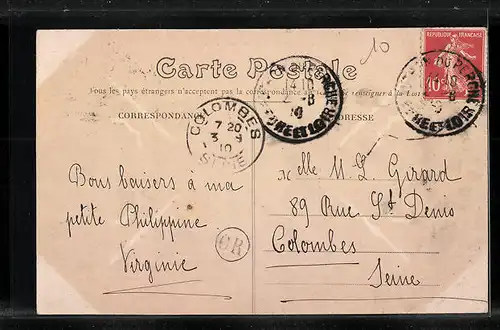 10
Carte Postale
Tous les pays étrangers n'acceptent pas la correspondance
renseigner à la
CORRESPONDANCE
ADRESSE
RÉPUBLIQUE FRANÇAISE
10
COLOMBES
7 20
3 - 8
10
SEINE
DU PERCHE
10
EURE ET LOIR
DU PERCHE
EURE ET LOIR
Bons baisers à ma
petite Philippine
Virginie
OR
Melle M. L. Girard
89 Rue St Denis
Colombes
Seine